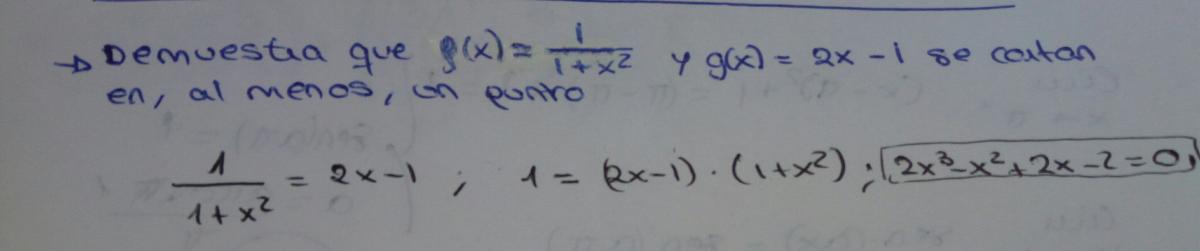 → Demuestra que f(x) = 1/(1+x²) y g(x) = 2x - 1 se cortan
en, al menos, un punto
1/(1+x²) = 2x-1 ; 1 = (2x-1) · (1+x²) ; 2x³-x²+2x-2=0,